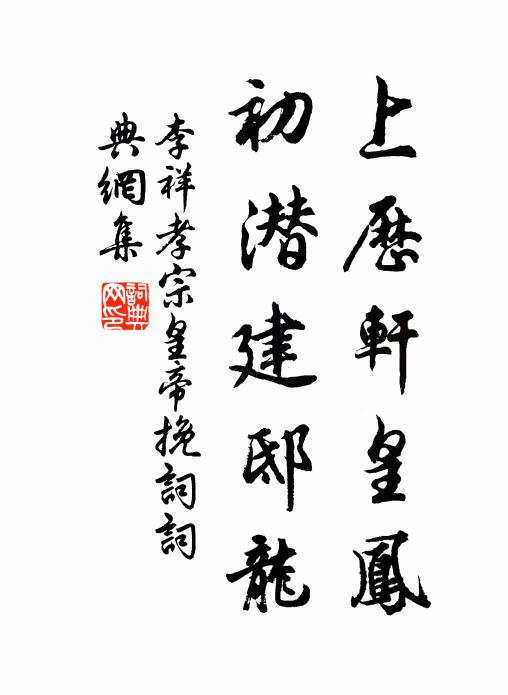 上歷軒皇鳳
初潛建邸龍
李祥孝宗皇帝挽詞詞
典網集
詞典網印